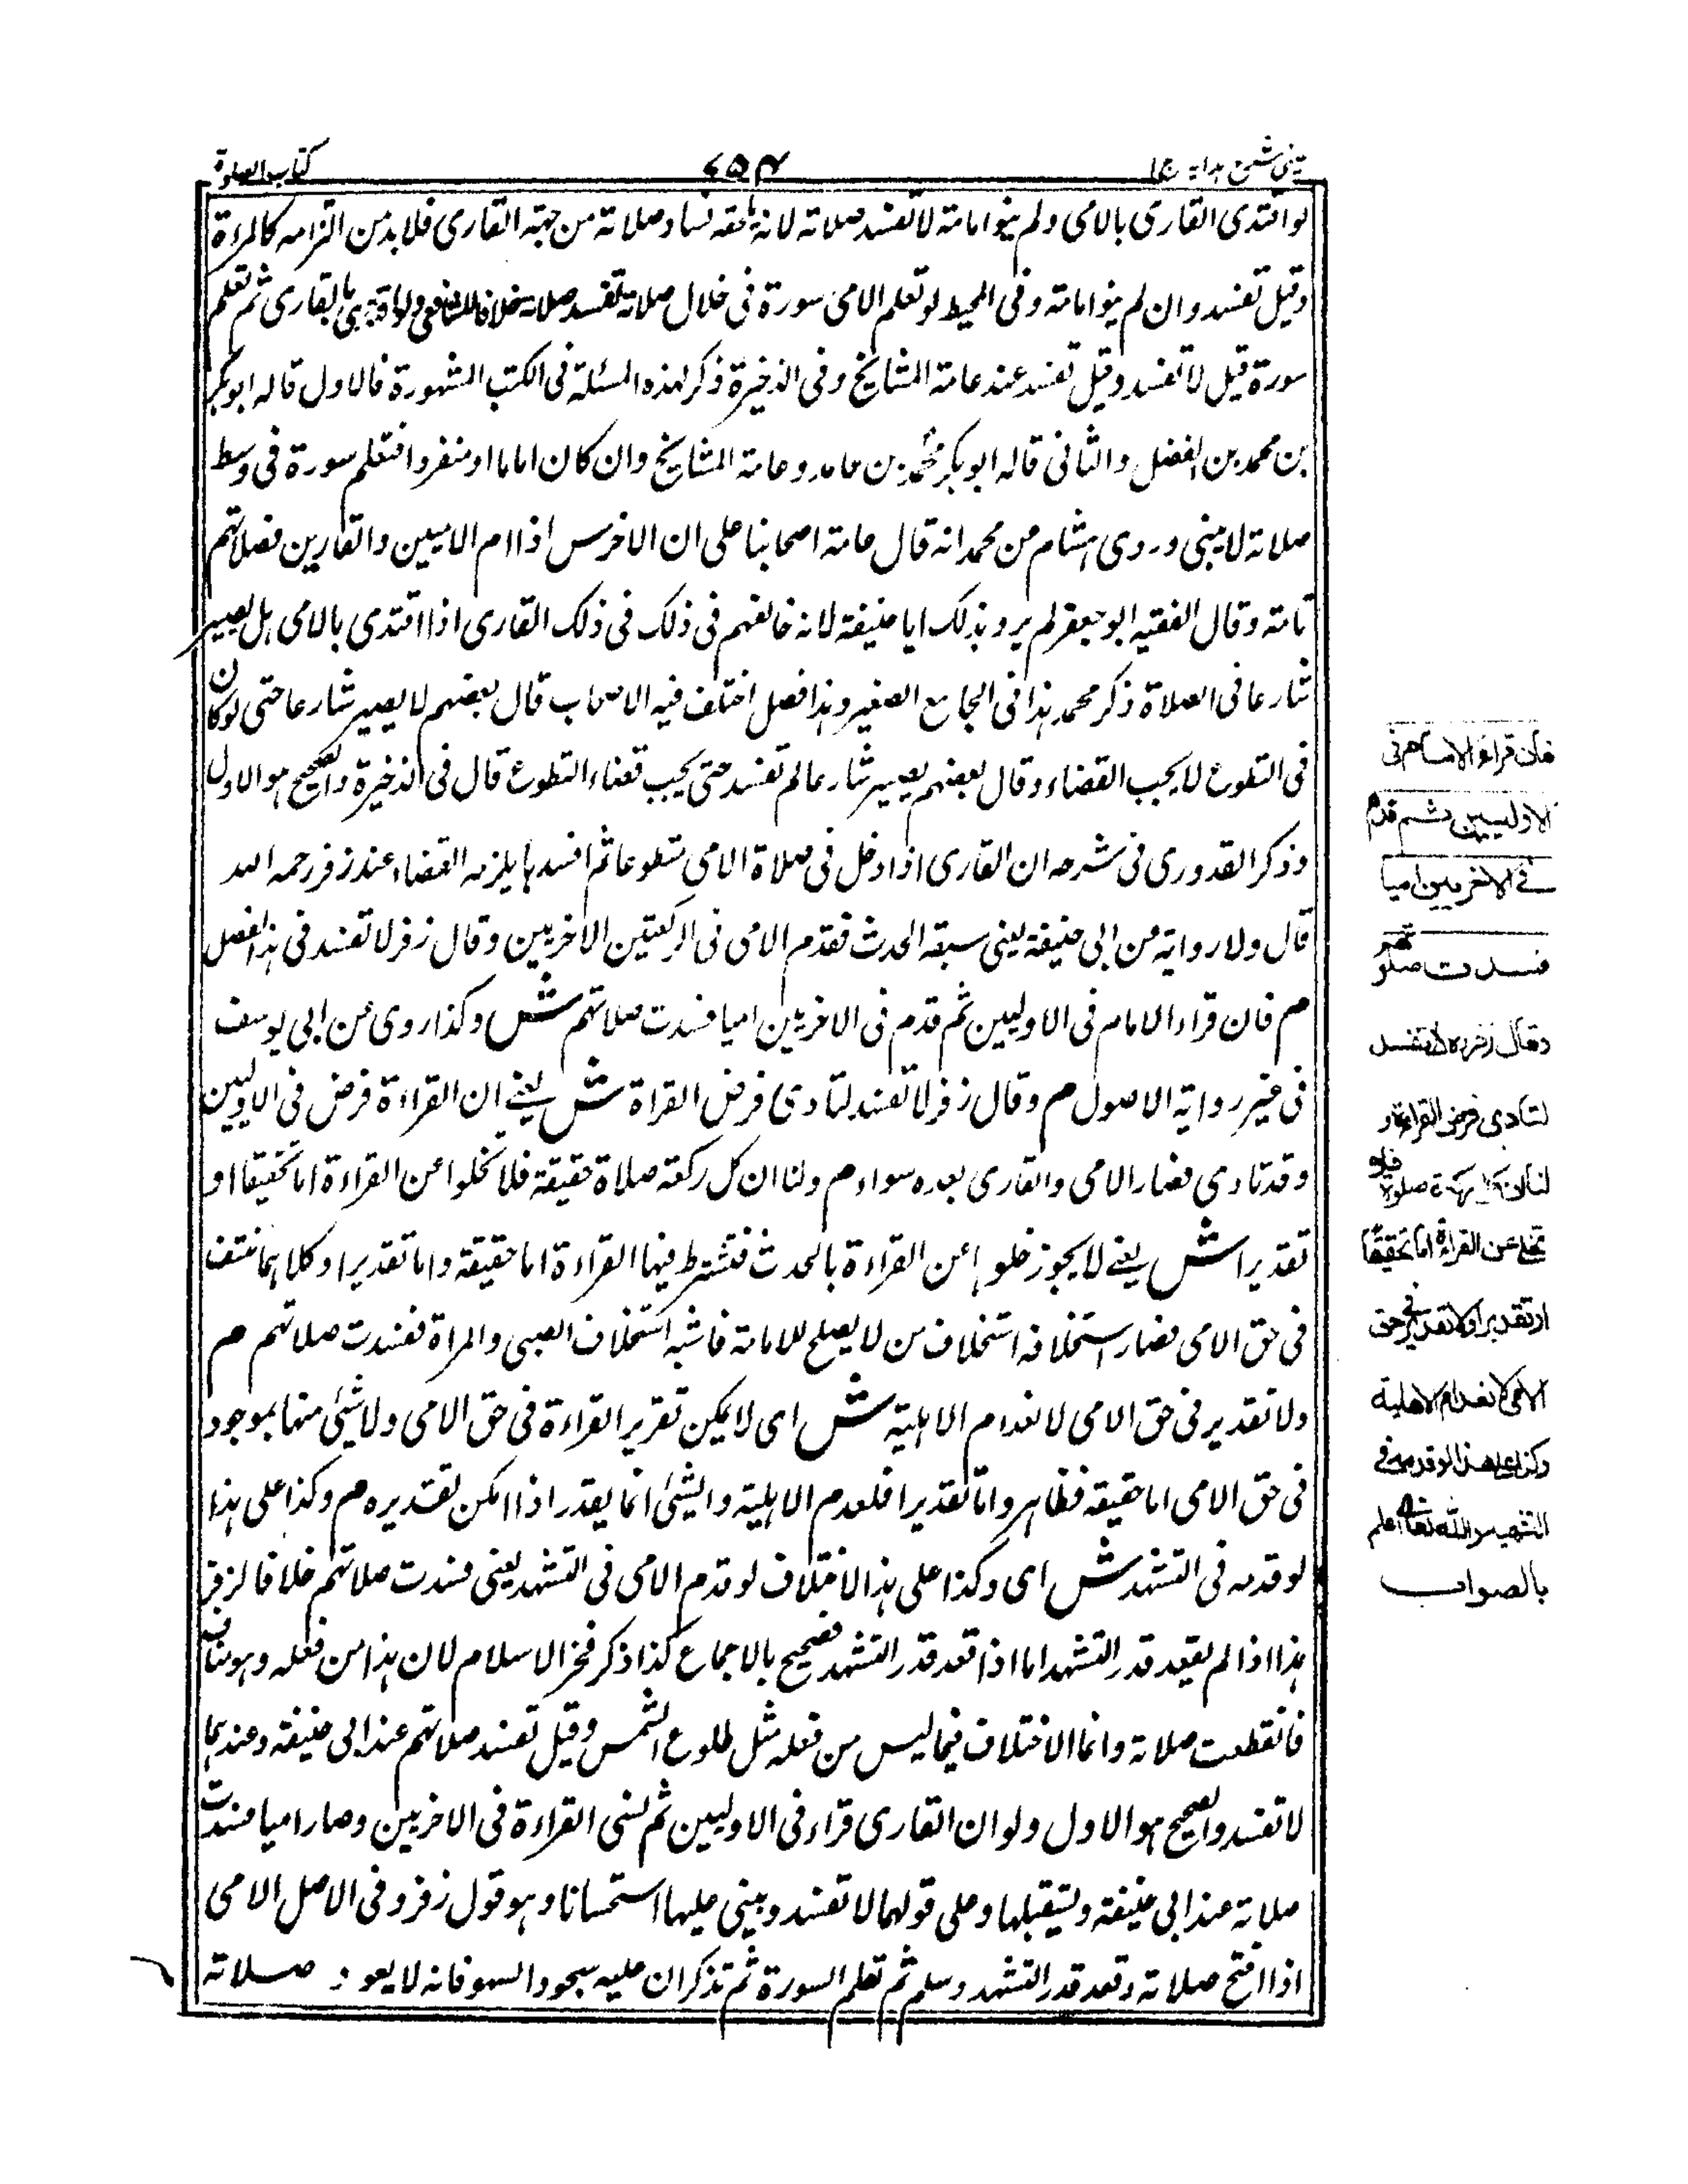 عینی شرح هدایه ج ا
۷۵۴
کتاب الصلوة
لو اقتدى القارى بالامى ولم ينو امامته لا تفسد صلاته لانه يلحقه فساد صلاته من جهة القارى فلا بد من التزامه كالمراة
وقيل تفسد وان لم ينو امامته وفى المحيط لو تعلم الامى سورة فى خلال صلاته تفسد صلاته خلافا للشافعى ولو اقتدى بالقارى ثم تعلم
سورة قيل لا تفسد وقيل تفسد عند عامة المشايخ وفى الذخيرة ذكر لهذه المسئلة فى الكتب المشهورة فالاول قاله ابو بكر
بن محمد بن الفضل والثانى قاله ابو بكر محمد بن حامد وعامة المشايخ وان كان اماما او منفردا فتعلم سورة فى وسط
صلاته لا يبنى وروى هشام من محمد انه قال عامة اصحابنا على ان الاخرس اذا ام الاميين والقارين فصلاتهم
تامة وقال الفقيه ابو جعفر لم يرو بذلك ابا حنيفة لانه خالفهم فى ذلك فى ذلك القارى اذا اقتدى بالامى هل يصير
شارعا فى الصلاة ذكر محمد هذا فى الجامع الصغير وهذا فصل اختلف فيه الاصحاب قال بعضهم لا يصير شارعا حتى لو كان
فى التطوع لا يجب القضاء وقال بعضهم يصير شارعا لم تفسد حتى يجب قضاء التطوع قال فى الذخيرة والصحيح هو الاول
وذكر القدورى فى شرحه ان القارى اذا دخل فى صلاة الامى متطوعا ثم افسدها يلزمه القضاء عند زفر رحمه الله
قال ولا رواية من ابى حنيفة يعنى سبقه الحدث فقدم الامى فى الركعتين الاخريين وقال زفر لا تفسد فى هذا الفصل
م فان قراء الامام فى الاوليين ثم قدم فى الاخريين اميا فسدت صلاتهم ش وكذا روى عن ابى يوسف
فى غير رواية الاصول م وقال زفر لا تفسد لتادى فرض القراة ش يعنى ان القراءة فرض فى الاوليين
وقد تادى فصار الامى والقارى بعده سواء م ولنا ان كل ركعة صلاة حقيقة فلا تخلوا عن القراءة اما تحقيقا او
تقديرا ش يعنى لا يجوز خلوها عن القراءة بالحدث فتشترط فيها القراءة اما حقيقة واما تقديرا وكلاهما منتف
فى حق الامى فصار استخلافه استخلاف من لا يصلح للامامة فاشبه استخلاف الصبى والمراة ففسدت صلاتهم م
ولا تقدير فى حق الامى لانعدام الاهلية ش اى لا يمكن تقرير القراءة فى حق الامى ولا شيئى منها بموجود
فى حق الامى اما حقيقة فظاهر واما تقديرا فلعدم الاهلية والشيئى انما يقدر اذا امكن تقديره م وكذا على هذا
لو قدمه فى التشهد ش اى وكذا على هذا الاختلاف لو قدم الامى فى التشهد يعنى فسدت صلاتهم خلافا لزفر
هذا اذا لم يقعد قدر التشهد اما اذا قعد قدر التشهد فصحيح بالاجماع كذا ذكر فخر الاسلام لان هذا من فعله وهو مناف
فانقطعت صلاته وانما الاختلاف فيما ليس من فعله مثل طلوع الشمس وقيل تفسد صلاتهم عند ابى حنيفة وعندهما
لا تفسد والصحيح هو الاول ولو ان القارى قراء فى الاوليين ثم نسى القراءة فى الاخريين وصار اميا فسدت
صلاته عند ابى حنيفة ويستقبلها وعلى قولهما لا تفسد ويبنى عليها استحسانا وهو قول زفر وفى الاصل الامى
اذا افتح صلاته وقعد قدر التشهد وسلم ثم تعلم السورة ثم تذكر ان عليه سجود السهو فانه لا يعود صلاته
فان قراء الامام فى
الاوليين ثم قدم
فى الاخريين اميا
فسدت صلوتهم
وقال زفر ره لا تفسد
لتادى فرض القراءة و
لنا ان كل ركعة صلوة فلا
تخلى عن القراءة اما تحقيقا
او تقديرا ولا تقدير فى حق
الامى لانعدام الاهلية
وكذا على هذا لو قدمه فى
التشهد والله تعالى اعلم
بالصواب